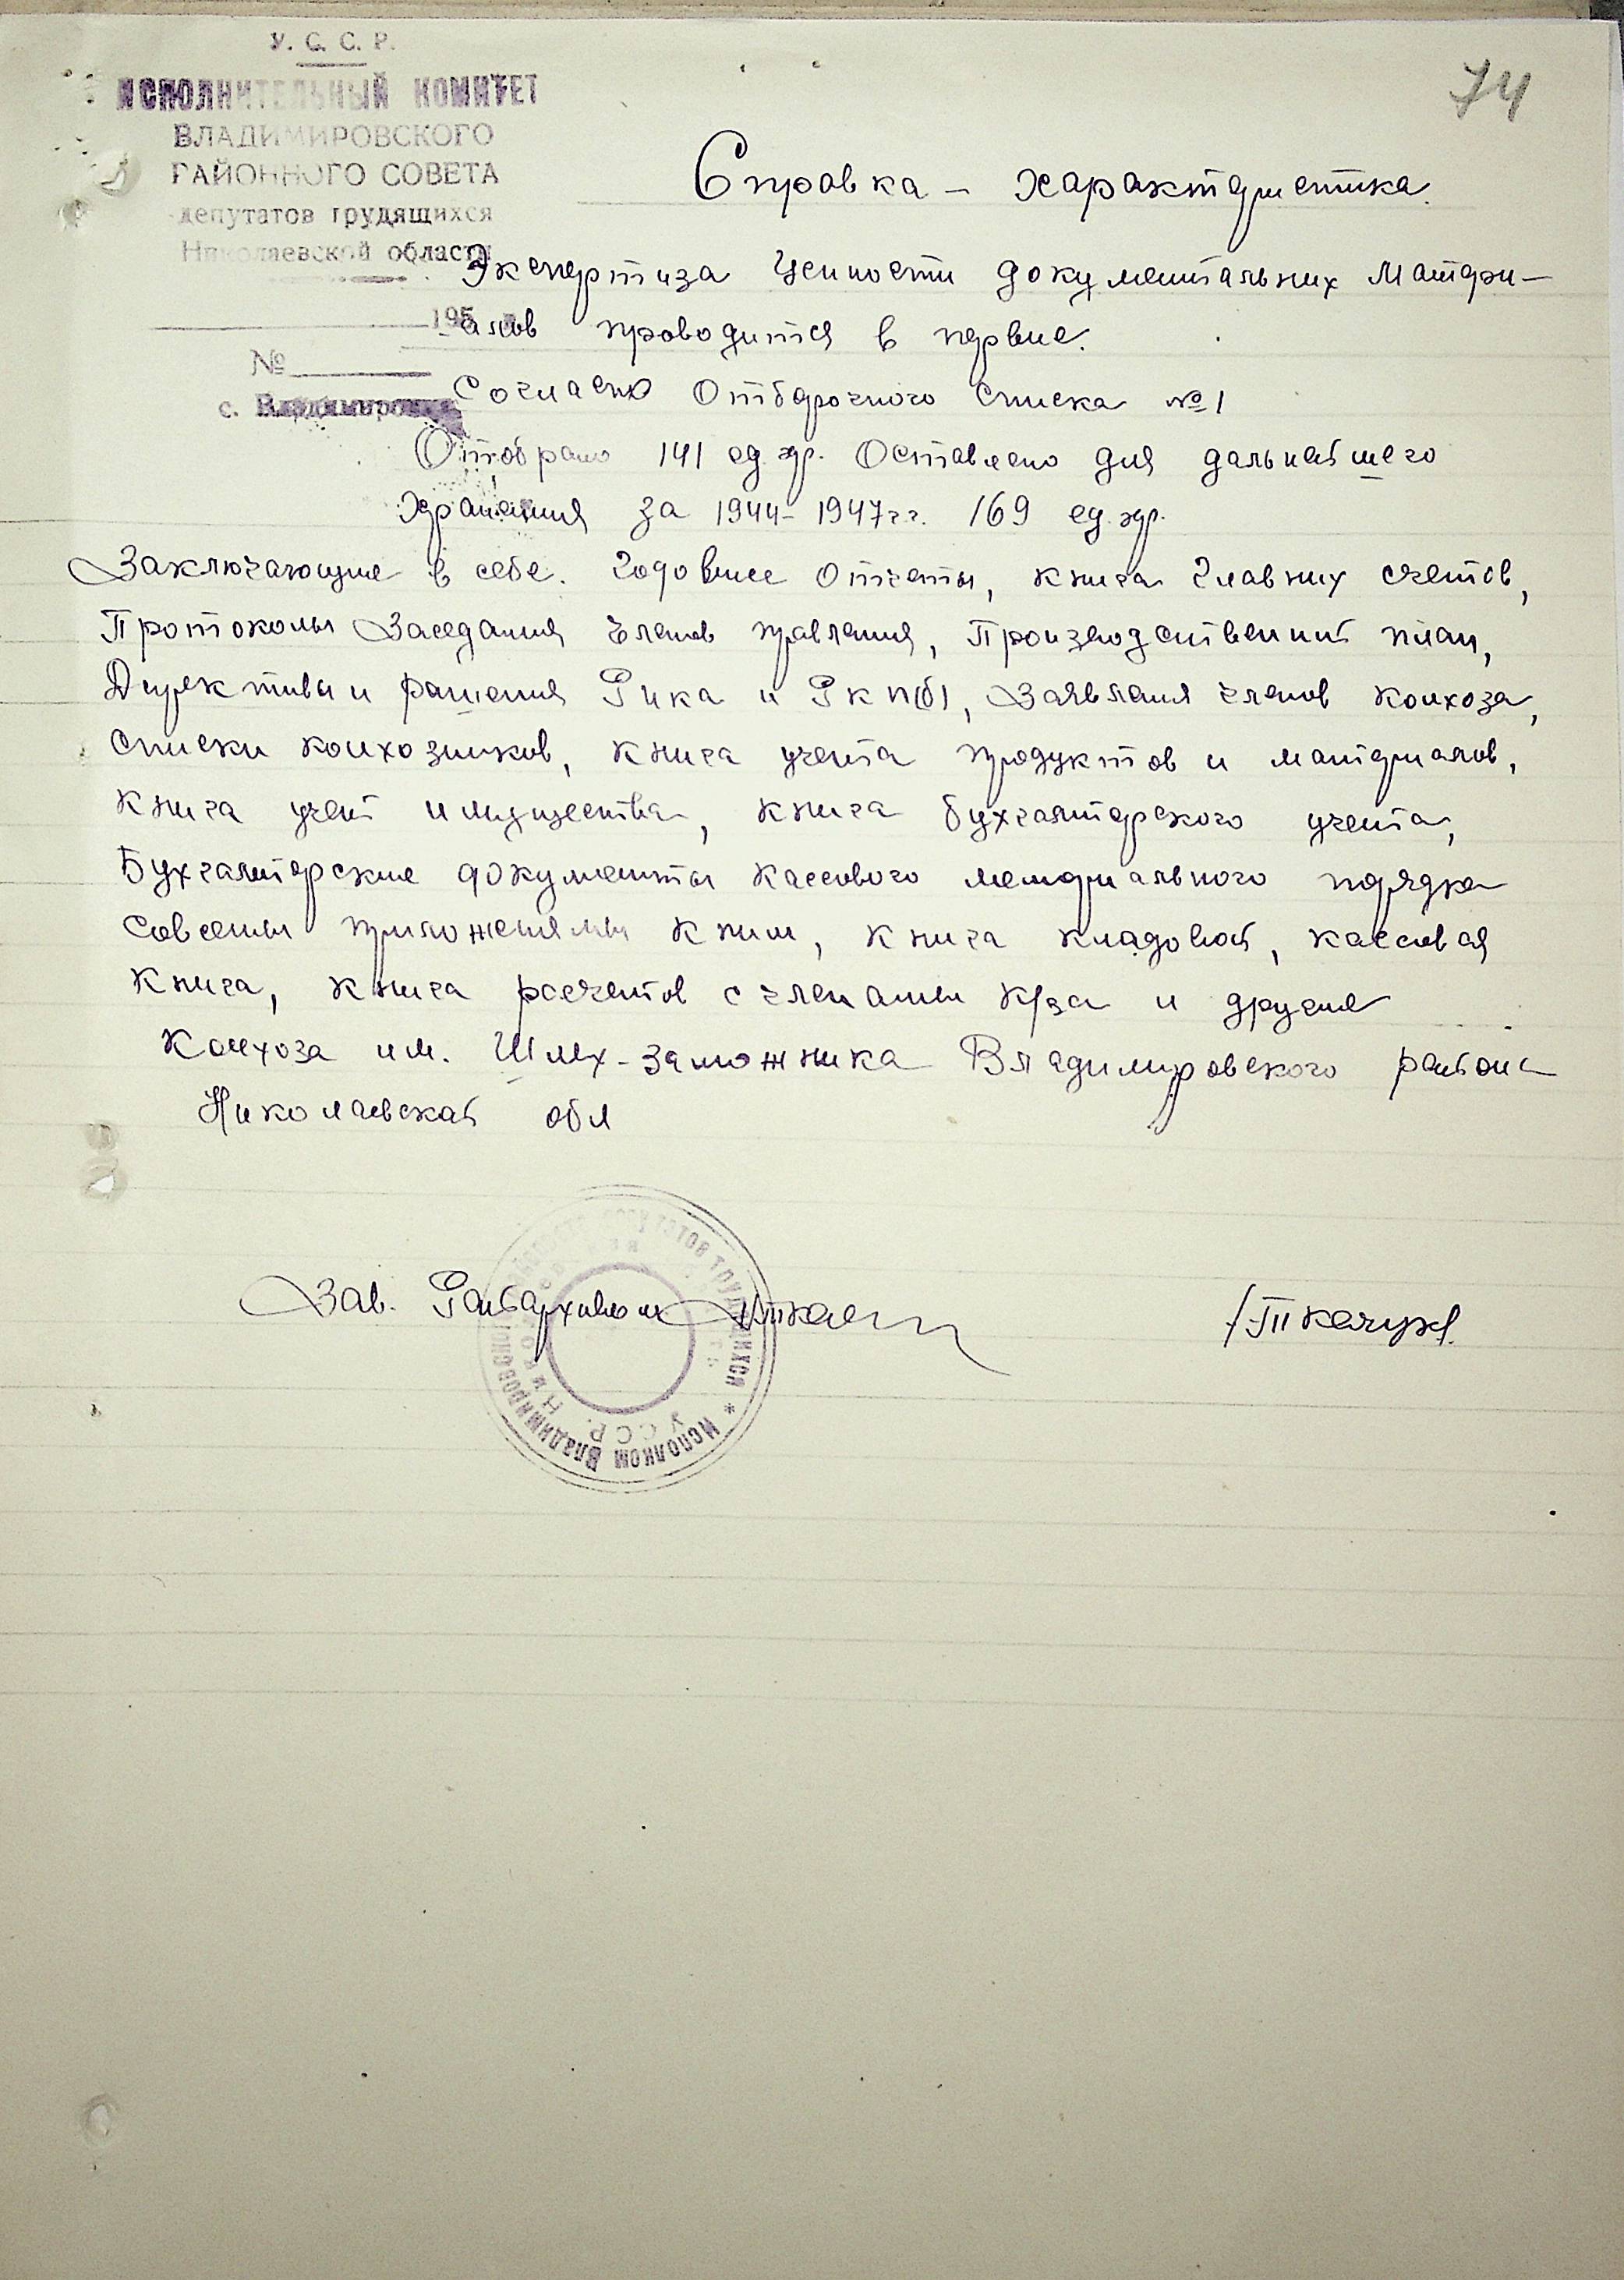 74
У. С. С. Р.
ИСПОЛНИТЕЛЬНЫЙ КОМИТЕТ
ВЛАДИМИРОВСКОГО
РАЙОННОГО СОВЕТА
депутатов трудящихся
Николаевской области
195
№
с. Владимировка
Справка – характеристика.
Экспертиза ценности документальних матери–
алов проводится в первие.
Согласно Отберочного списка №1
Отобрано 141 ед. хр. Оставлено для дальнейшего
хранения за 1944– 1947г.г. 169 ед. хр.
Заключающие в себе. Годовие Отчеты, книга Главних счетов,
Протоколы Заседания членов правления, Производственний план,
Директивы и решения Рика и РК П(б), Заявления членов колхоза,
списки колхозников, книга учета продуктов и материалов,
Книга учет имущества, книга бухгалтерского учета,
Бухгалтерские документы кассового мемориального порядка
совсеми приложениями к ним, книга кладовой, кассовая
Книга, книга расчетов с членами к/за и другие
Колхоза им. Шлях-заможника Владимировского района
Николаевской обл
Зав. Райархивом
/Ткачук/.
Исполком Владимировск
трудящихся *
УССР.